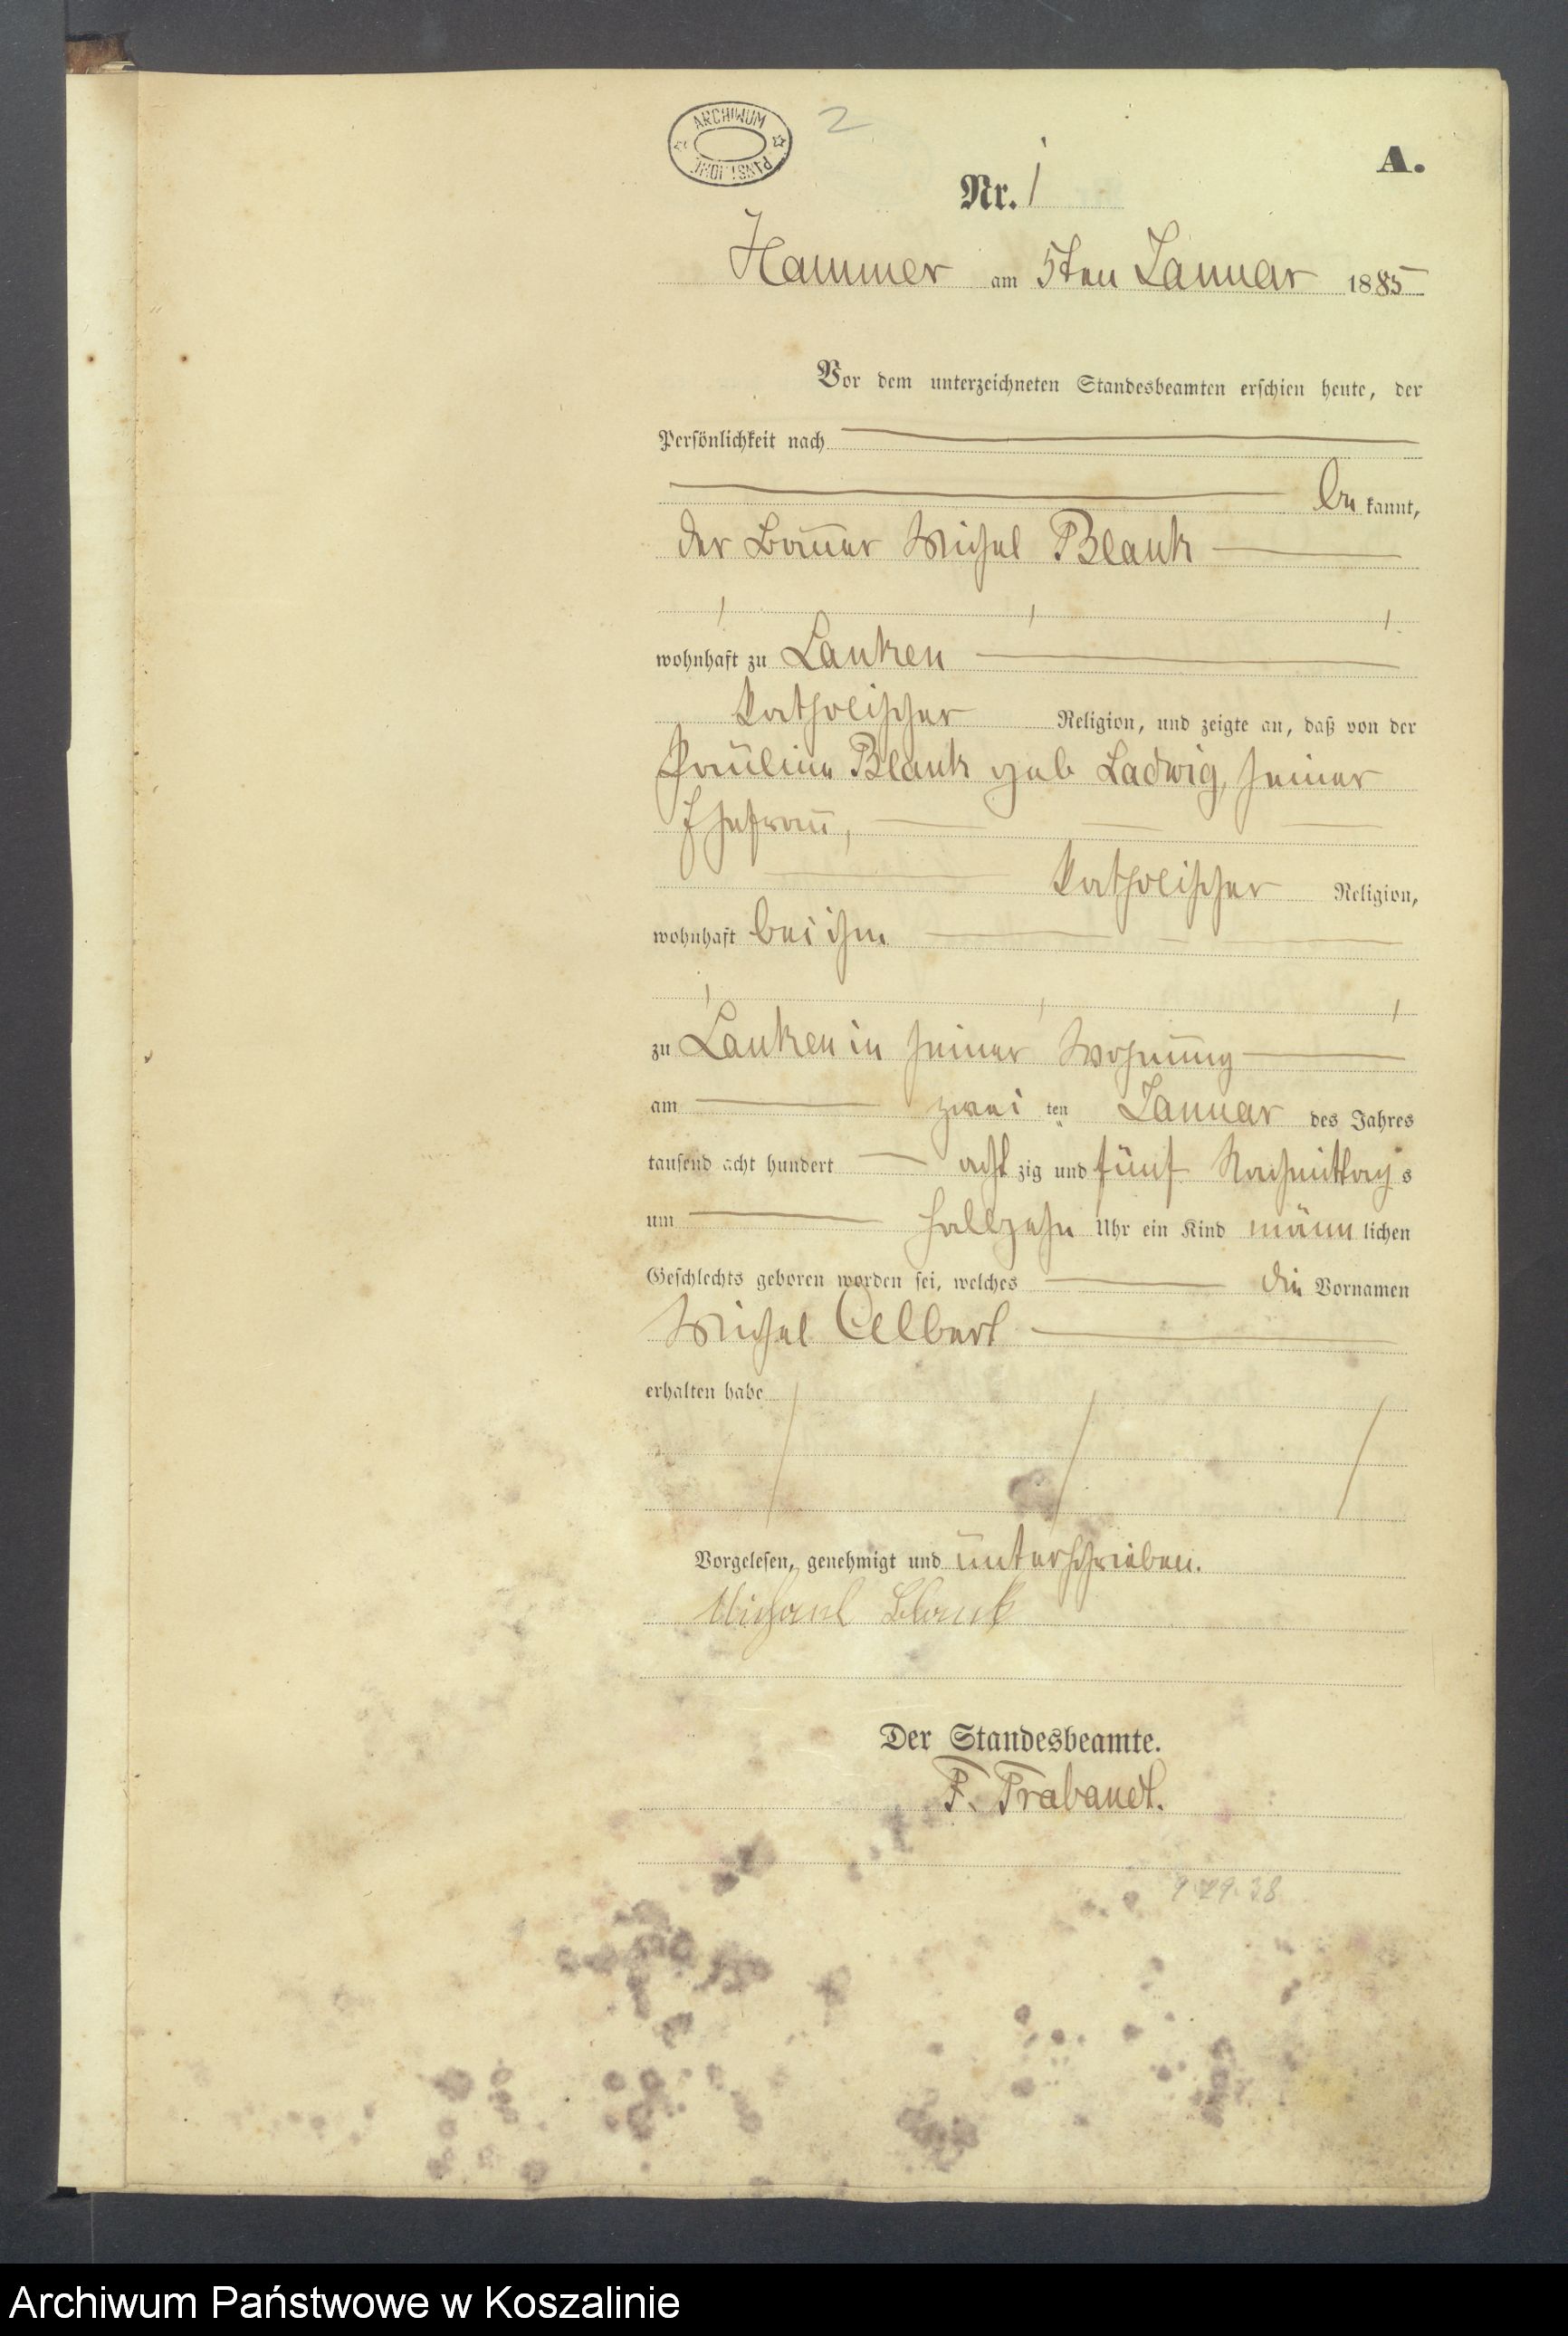 ARCHIWUM
PAŃSTWOWE
2
A.
Nr. 1
Hammer am 5ten Januar 1885
Vor dem unterzeichneten Standesbeamten erschien heute, der
Persönlichkeit nach
be kannt,
der Bauer Michel Blank
wohnhaft zu Lanken
katholischer Religion, und zeigte an, daß von der
Pauline Blank geb Ladwig, seiner
Ehefrau,
katholischer Religion,
wohnhaft bei ihm
zu Lanken in seiner Wohnung
am zwei ten Januar des Jahres
tausend acht hundert acht zig und fünf Nachmittag s
um halbzehn Uhr ein Kind männ lichen
Geschlechts geboren worden sei, welches die Vornamen
Michel Albert
erhalten habe
Vorgelesen, genehmigt und unterschrieben.
Michael Blank
Der Standesbeamte.
F. Trabandt.
9.29.38
Archiwum Państwowe w Koszalinie